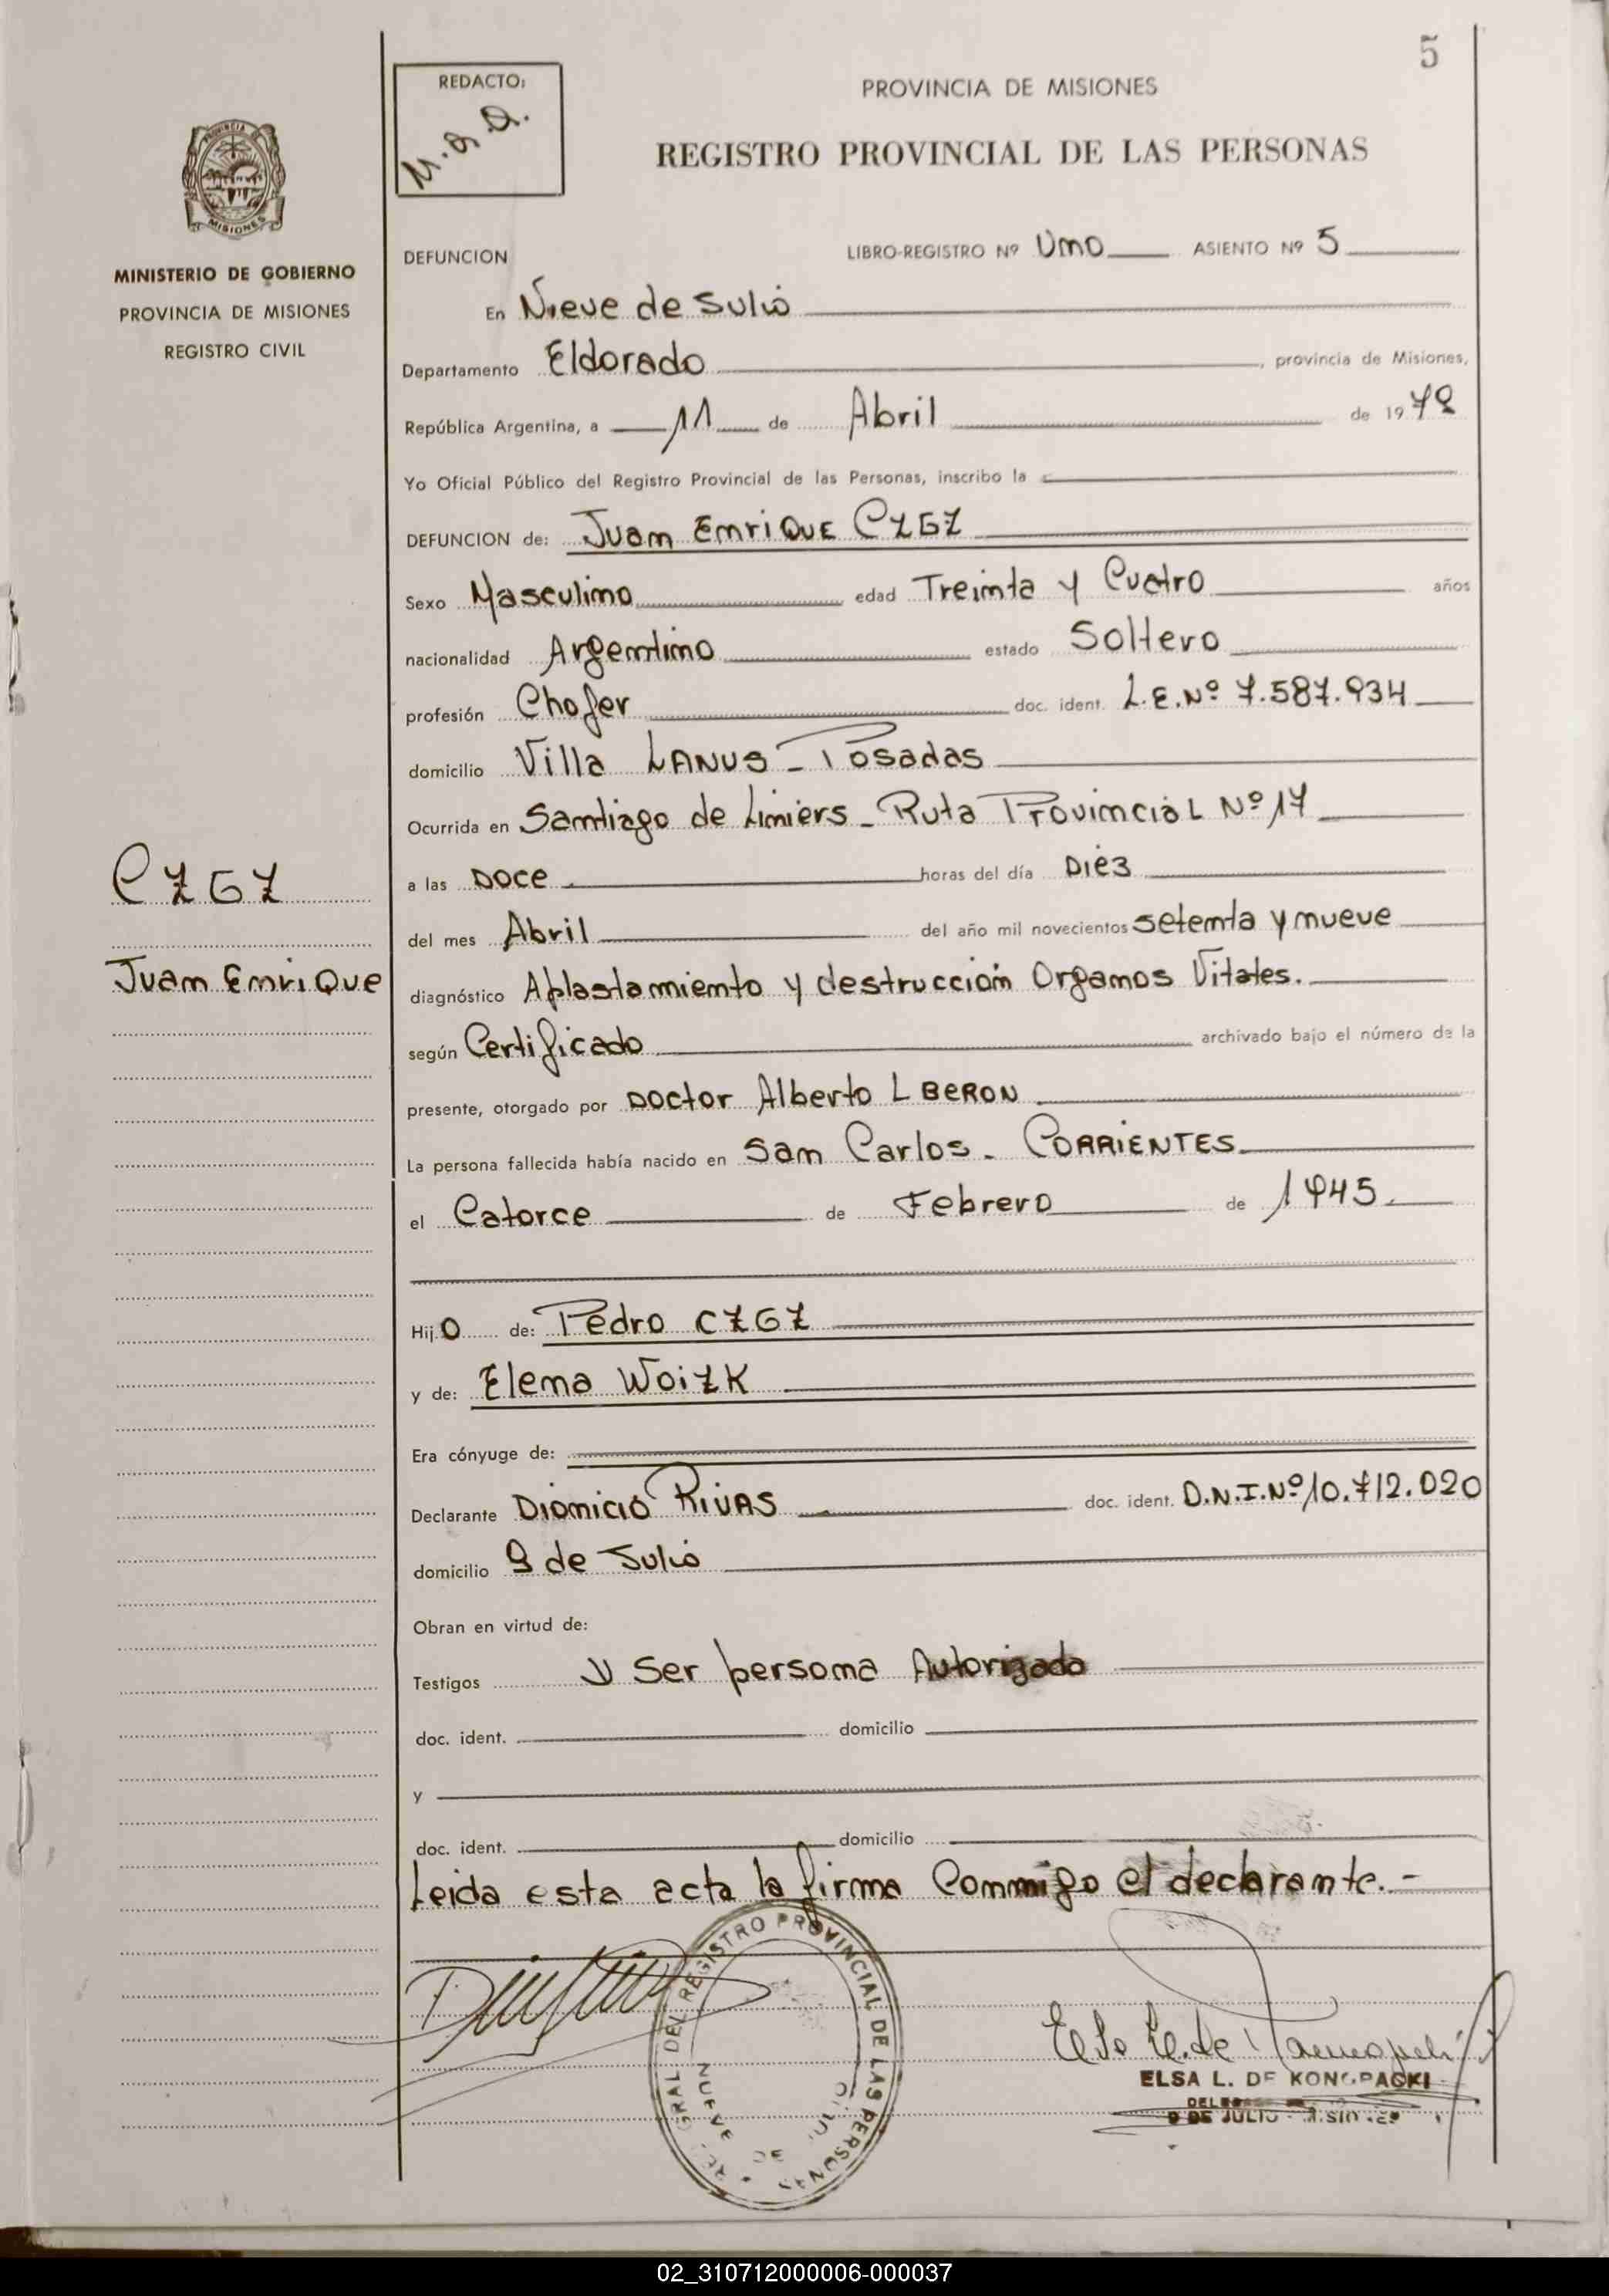 5
REDACTO:
M.g.a.
PROVINCIA DE MISIONES
REGISTRO PROVINCIAL DE LAS PERSONAS
PROVINCIA DE
MISIONES
MINISTERIO DE GOBIERNO
PROVINCIA DE MISIONES
REGISTRO CIVIL
DEFUNCION LIBRO-REGISTRO Nº Uno ASIENTO Nº 5
En Nieve de Julio
Departamento Eldorado, provincia de Misiones,
República Argentina, a 11 de Abril de 1979
Yo Oficial Público del Registro Provincial de las Personas, inscribo la
DEFUNCION de: Juan Enrique CZGZ
Sexo Masculino edad Treinta y Cuatro años
nacionalidad Argentino estado Soltero
profesión Chofer doc. ident. L.E.Nº 7.587.934
domicilio Villa LANUS - Posadas
Ocurrida en Santiago de Liniers - Ruta Provincial Nº 17
CZGZ
Juan Enrique
a las Doce horas del día Diez
del mes Abril del año mil novecientos setenta y nueve
diagnóstico Aplastamiento y destrucción Organos Vitales.
según Certificado archivado bajo el número de la
presente, otorgado por Doctor Alberto L BERON
La persona fallecida había nacido en San Carlos - CORRIENTES
el Catorce de Febrero de 1945.
Hijo de: Pedro CZGZ
y de: Elena WOIZK
Era cónyuge de:
Declarante Dionicio RIVAS doc. ident. D.N.I.Nº 10.712.020
domicilio 9 de Julio
Obran en virtud de:
Testigos Ser persona Autorizada
doc. ident. domicilio
y
doc. ident. domicilio
Leida esta acta la firma Conmigo el declarante.-
GRAL DEL REGISTRO PROVINCIAL DE LAS PERSONAS
NUEVE DE JULIO
ELSA L. DE KONOPACKI
9 DE JULIO - MISIONES
02_310712000006-000037